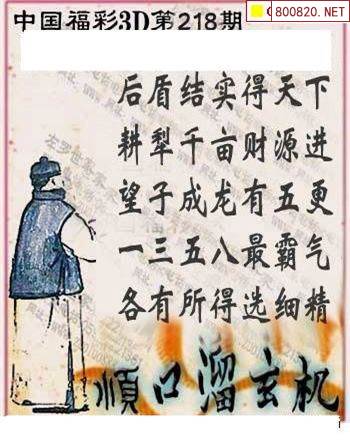 800820.NET
中国福彩3D第218期
后盾结实得天下
耕犁千亩财源进
望子成龙有五更
一三五八最霸气
各有所得选细精
順口溜玄机